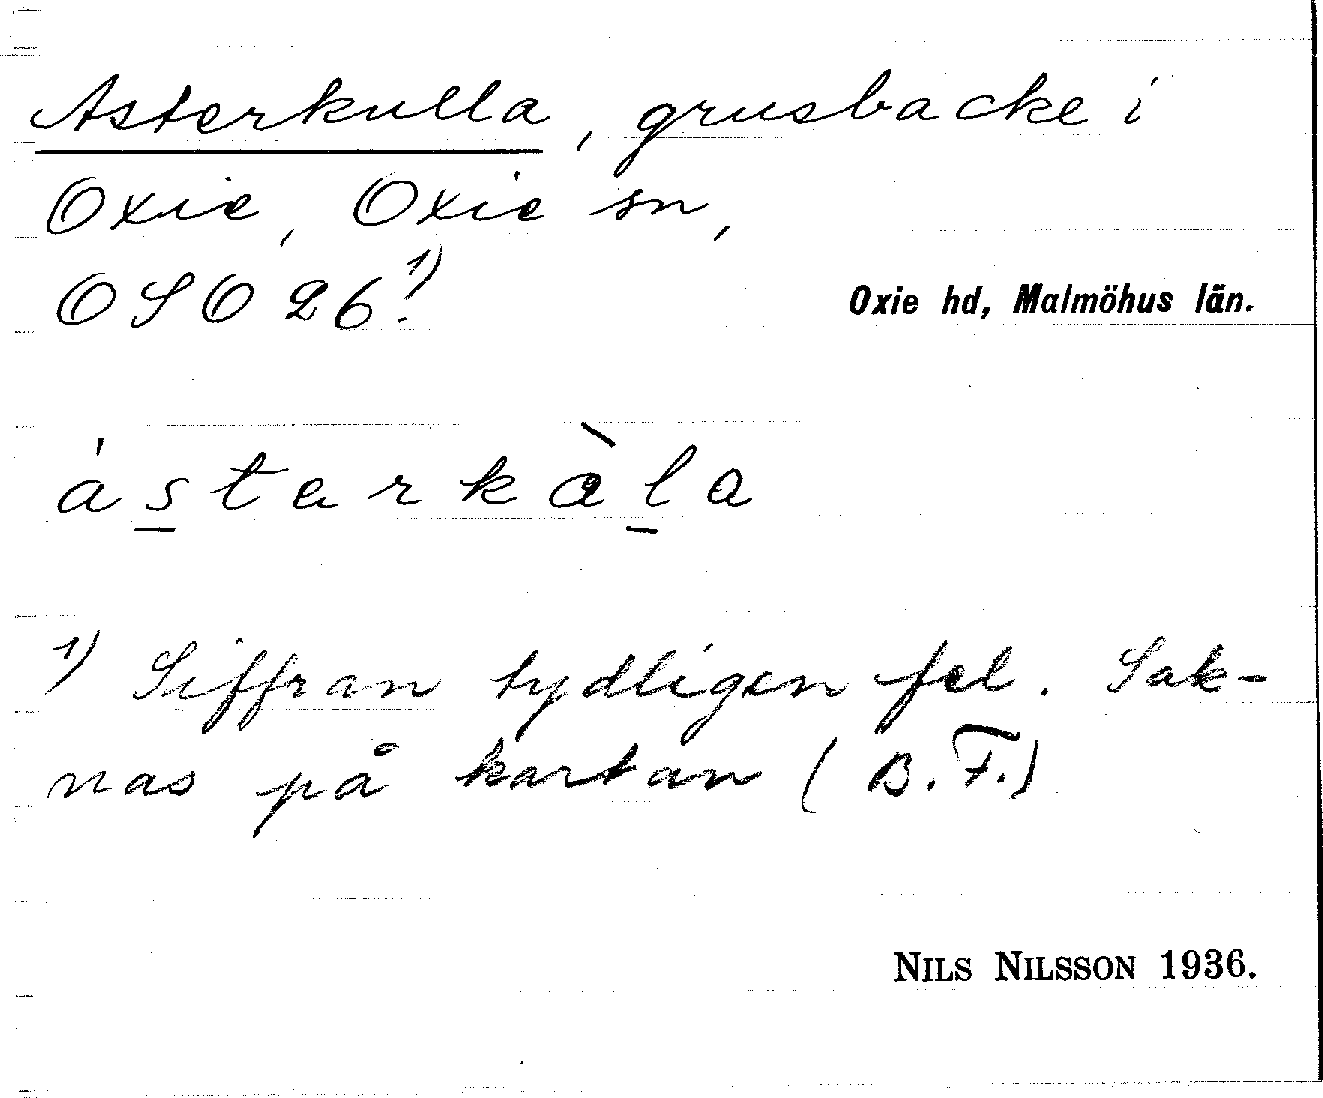 Asterkulla, grusbacke i
Oxie, Oxie sn,
OSO 26.¹⁾
Oxie hd, Malmöhus län.
ástarkàla
¹⁾ Siffran tydligen fel. Sak-
nas på kartan (B.F.)
NILS NILSSON 1936.